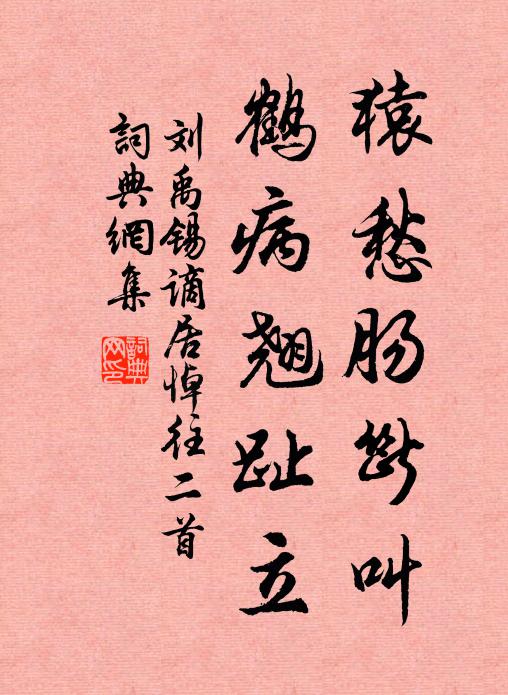 猿愁肠斷叫
鶴病翹趾立
刘禹锡谪居悼往二首
詞典網集
詞典网印